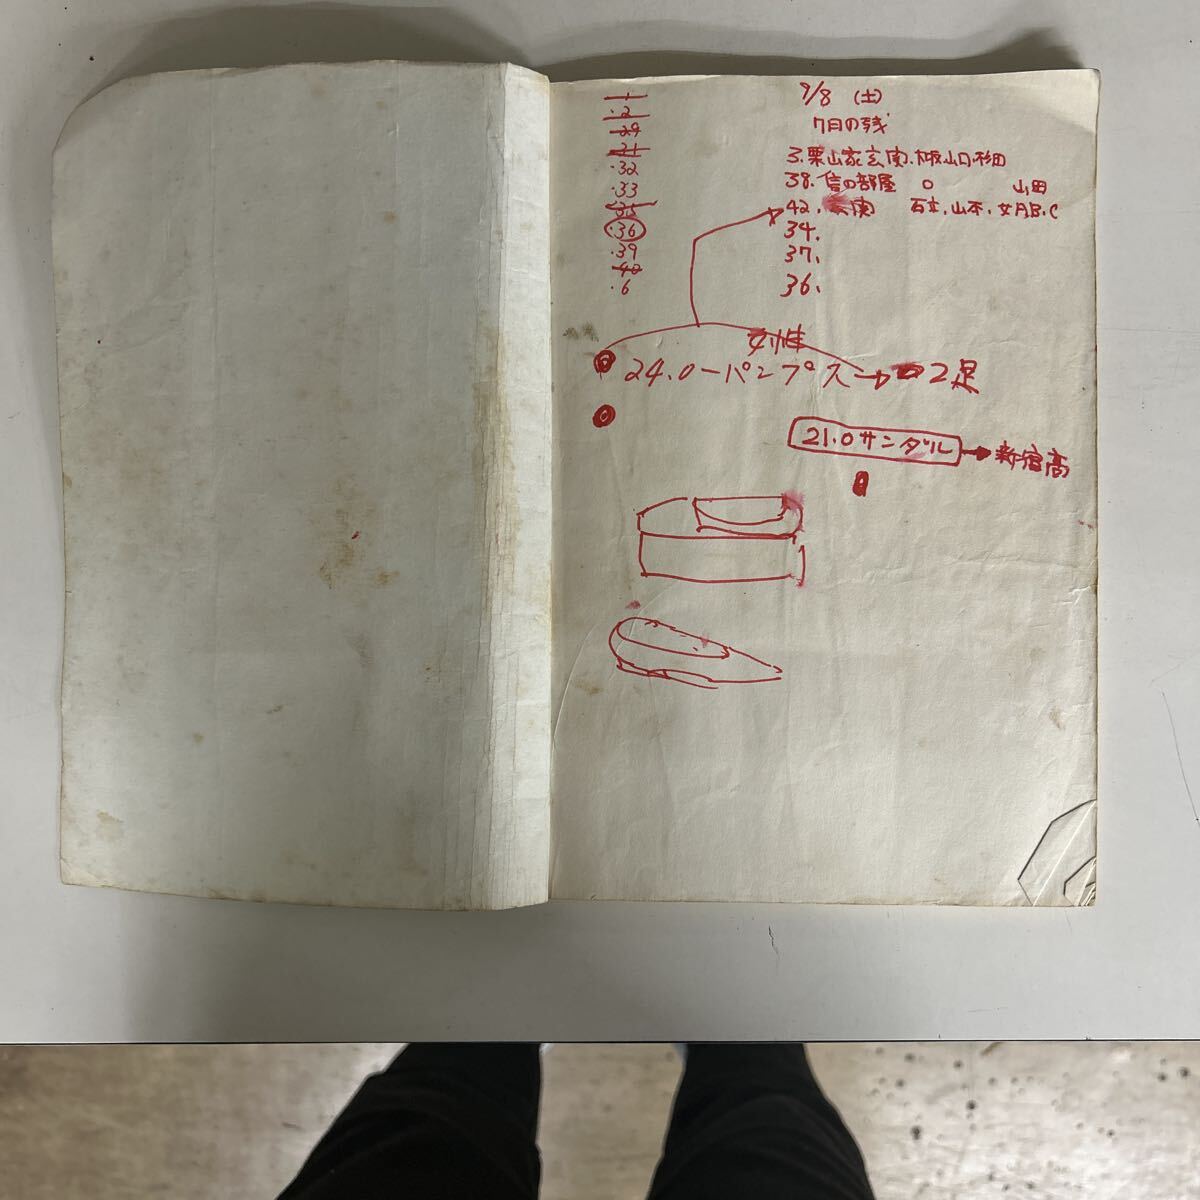 1
.2
29
31
.32
.33
35
.36
.39
40
.6
9/8 (土)
7日の残
3.栗山家玄関.板山口.杉田
38.信の部屋 〇 山田
42. 玄関 石立.山本.女A.B.C
34.
37.
36.
女性
24.0ーパンプス→2足
21.0サンダル→新宿高